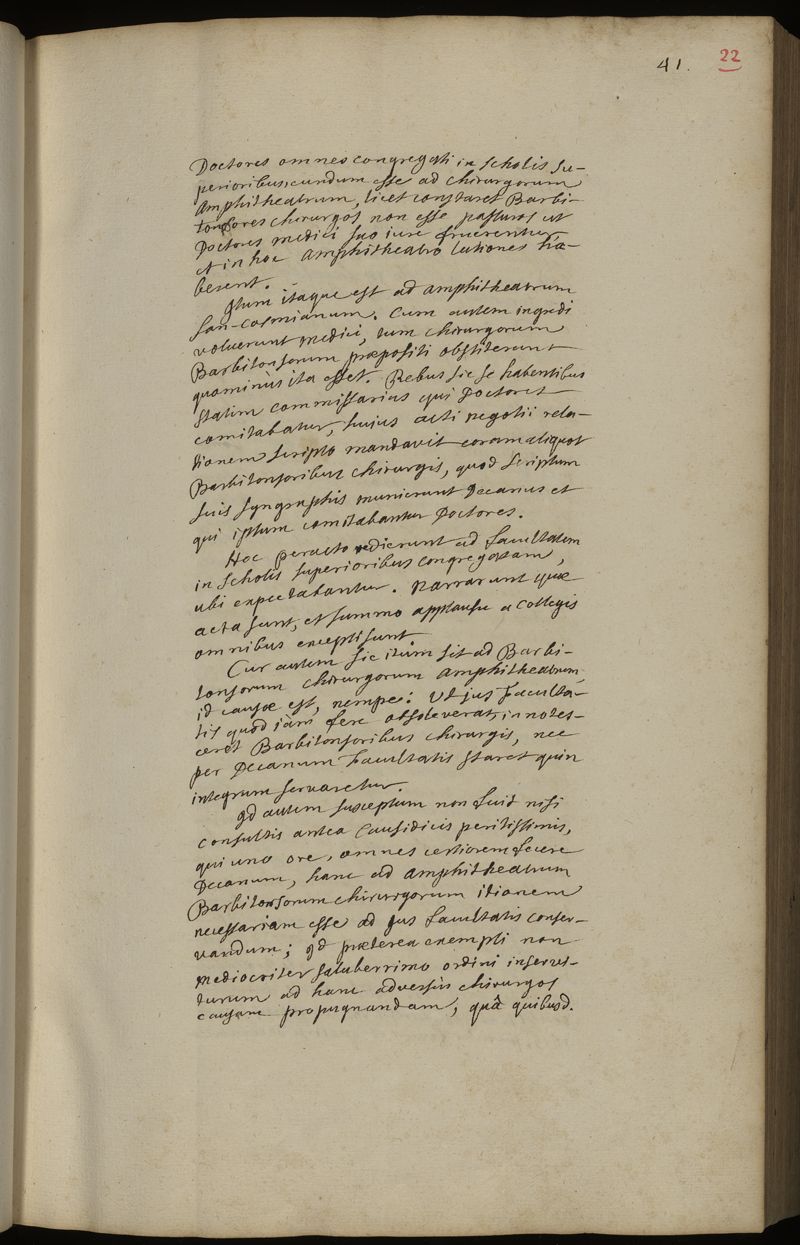 41. 22
Doctores omnes congregati in scholis su-
perioribus, eundum esse ad chirurgorum
Amphitheatrum, licet constaret Barbi-
tonsores chirurgos non esse passuros ut
Doctores medici suo iure fruerentur
et in hoc Amphitheatro lectiones ha-
berent.
Itum itaque est ad amphitheatrum
san-cosmianum. Cum autem ingredi
voluerunt medici, tum chirurgorum
Barbitonsorum præpositi obstiterunt
quominùs ita esset. Rebus sic se habentibus
statim commissarius qui Doctores
comitabatur, huius acti negotii rela-
tionem scripto mandavit coram aliquot
Barbitonsoribus chirurgis, quod scriptum
suis syngraphis munierunt Decanus et
qui ipsum comitabantur Doctores.
Hoc peracto redierunt ad facultatem
in scholis superioribus congregatam,
ubi expectabantur. Narrarunt quæ
acta sunt, et summo applausu a collegis
omnibus excepti sunt.
Cur autem sic itum sit ad Barbi-
tonsorum chirurgorum amphitheatrum,
id causæ est, nempe: Ut jus Faculta-
tis quod iàm fere obsoleverat, innotes-
ceret Barbitonsoribus chirurgis, nec
per Decanum Facultatis staret quin
integrum servaretur.
Id autem susceptum non fuit nisi
consultis antea Causidicis peritissimis,
qui uno ore, omnes certiorem fecere
Decanum, hanc ad amphitheatrum
Barbitonsorum chirurgorum itionem
necessariam esse ad jus facultatis conser-
vandum; id præterea exempli non
mediocriter saluberrimo ordini inservi-
turum ad hanc adversùs chirurgos
causam propugnandam, quâ quibusd.